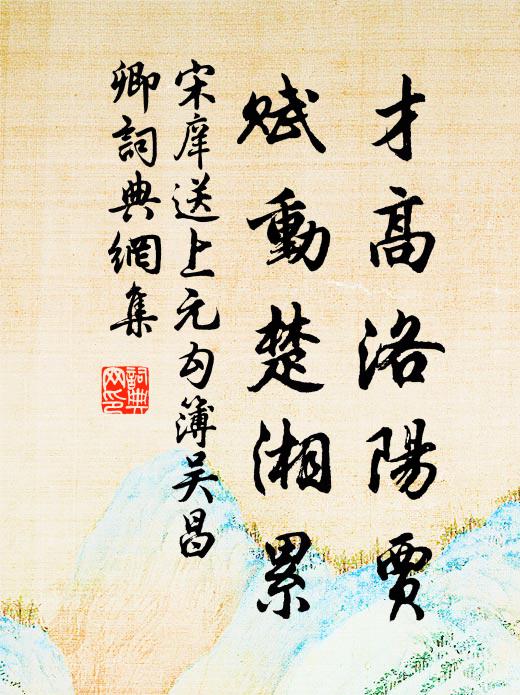 才高洛陽賈
賦動楚湘累
宋庠送上元勾簿吴昌
卿詞典網集
詞典
网印